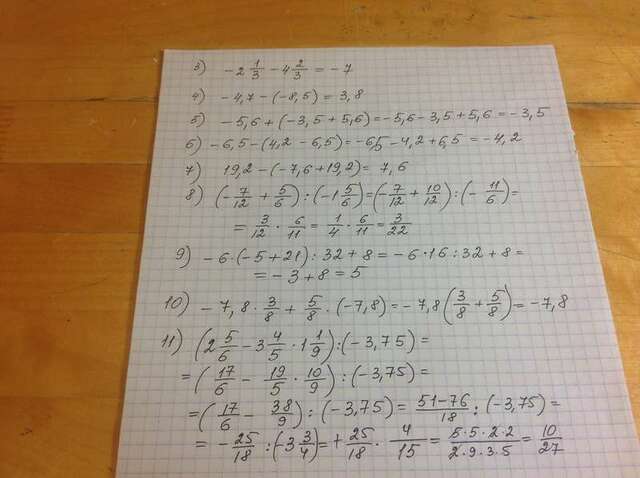 3) -2 1/3 - 4 2/3 = -7
4) -4,7 - (-8,5) = 3,8
5) -5,6 + (-3,5 + 5,6) = -5,6 - 3,5 + 5,6 = -3,5
6) -6,5 - (4,2 - 6,5) = -6,5 - 4,2 + 6,5 = -4,2
7) 19,2 - (-7,6 + 19,2) = 7,6
8) (-7/12 + 5/6) : (-1 5/6) = (-7/12 + 10/12) : (-11/6) =
= 3/12 · 6/11 = 1/4 · 6/11 = 3/22
9) -6 · (-5 + 21) : 32 + 8 = -6 · 16 : 32 + 8 =
= -3 + 8 = 5
10) -7,8 · 3/8 + 5/8 · (-7,8) = -7,8 (3/8 + 5/8) = -7,8
11) (2 5/6 - 3 4/5 · 1 1/9) : (-3,75) =
= (17/6 - 19/5 · 10/9) : (-3,75) =
= (17/6 - 38/9) : (-3,75) = 51-76/18 : (-3,75) =
= -25/18 : (-3 3/4) = +25/18 · 4/15 = 5·5·2·2/2·9·3·5 = 10/27